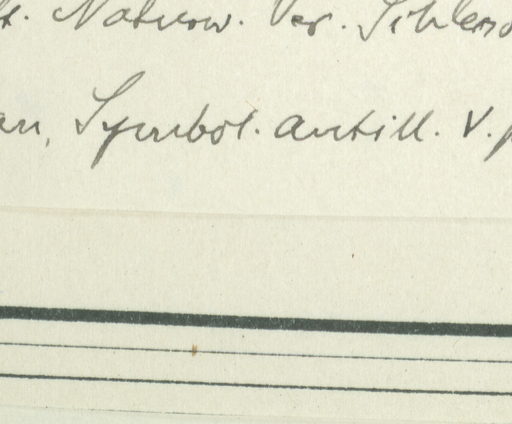 Naturw. Ver. Schlesw
an, Symbol. antill. V. p